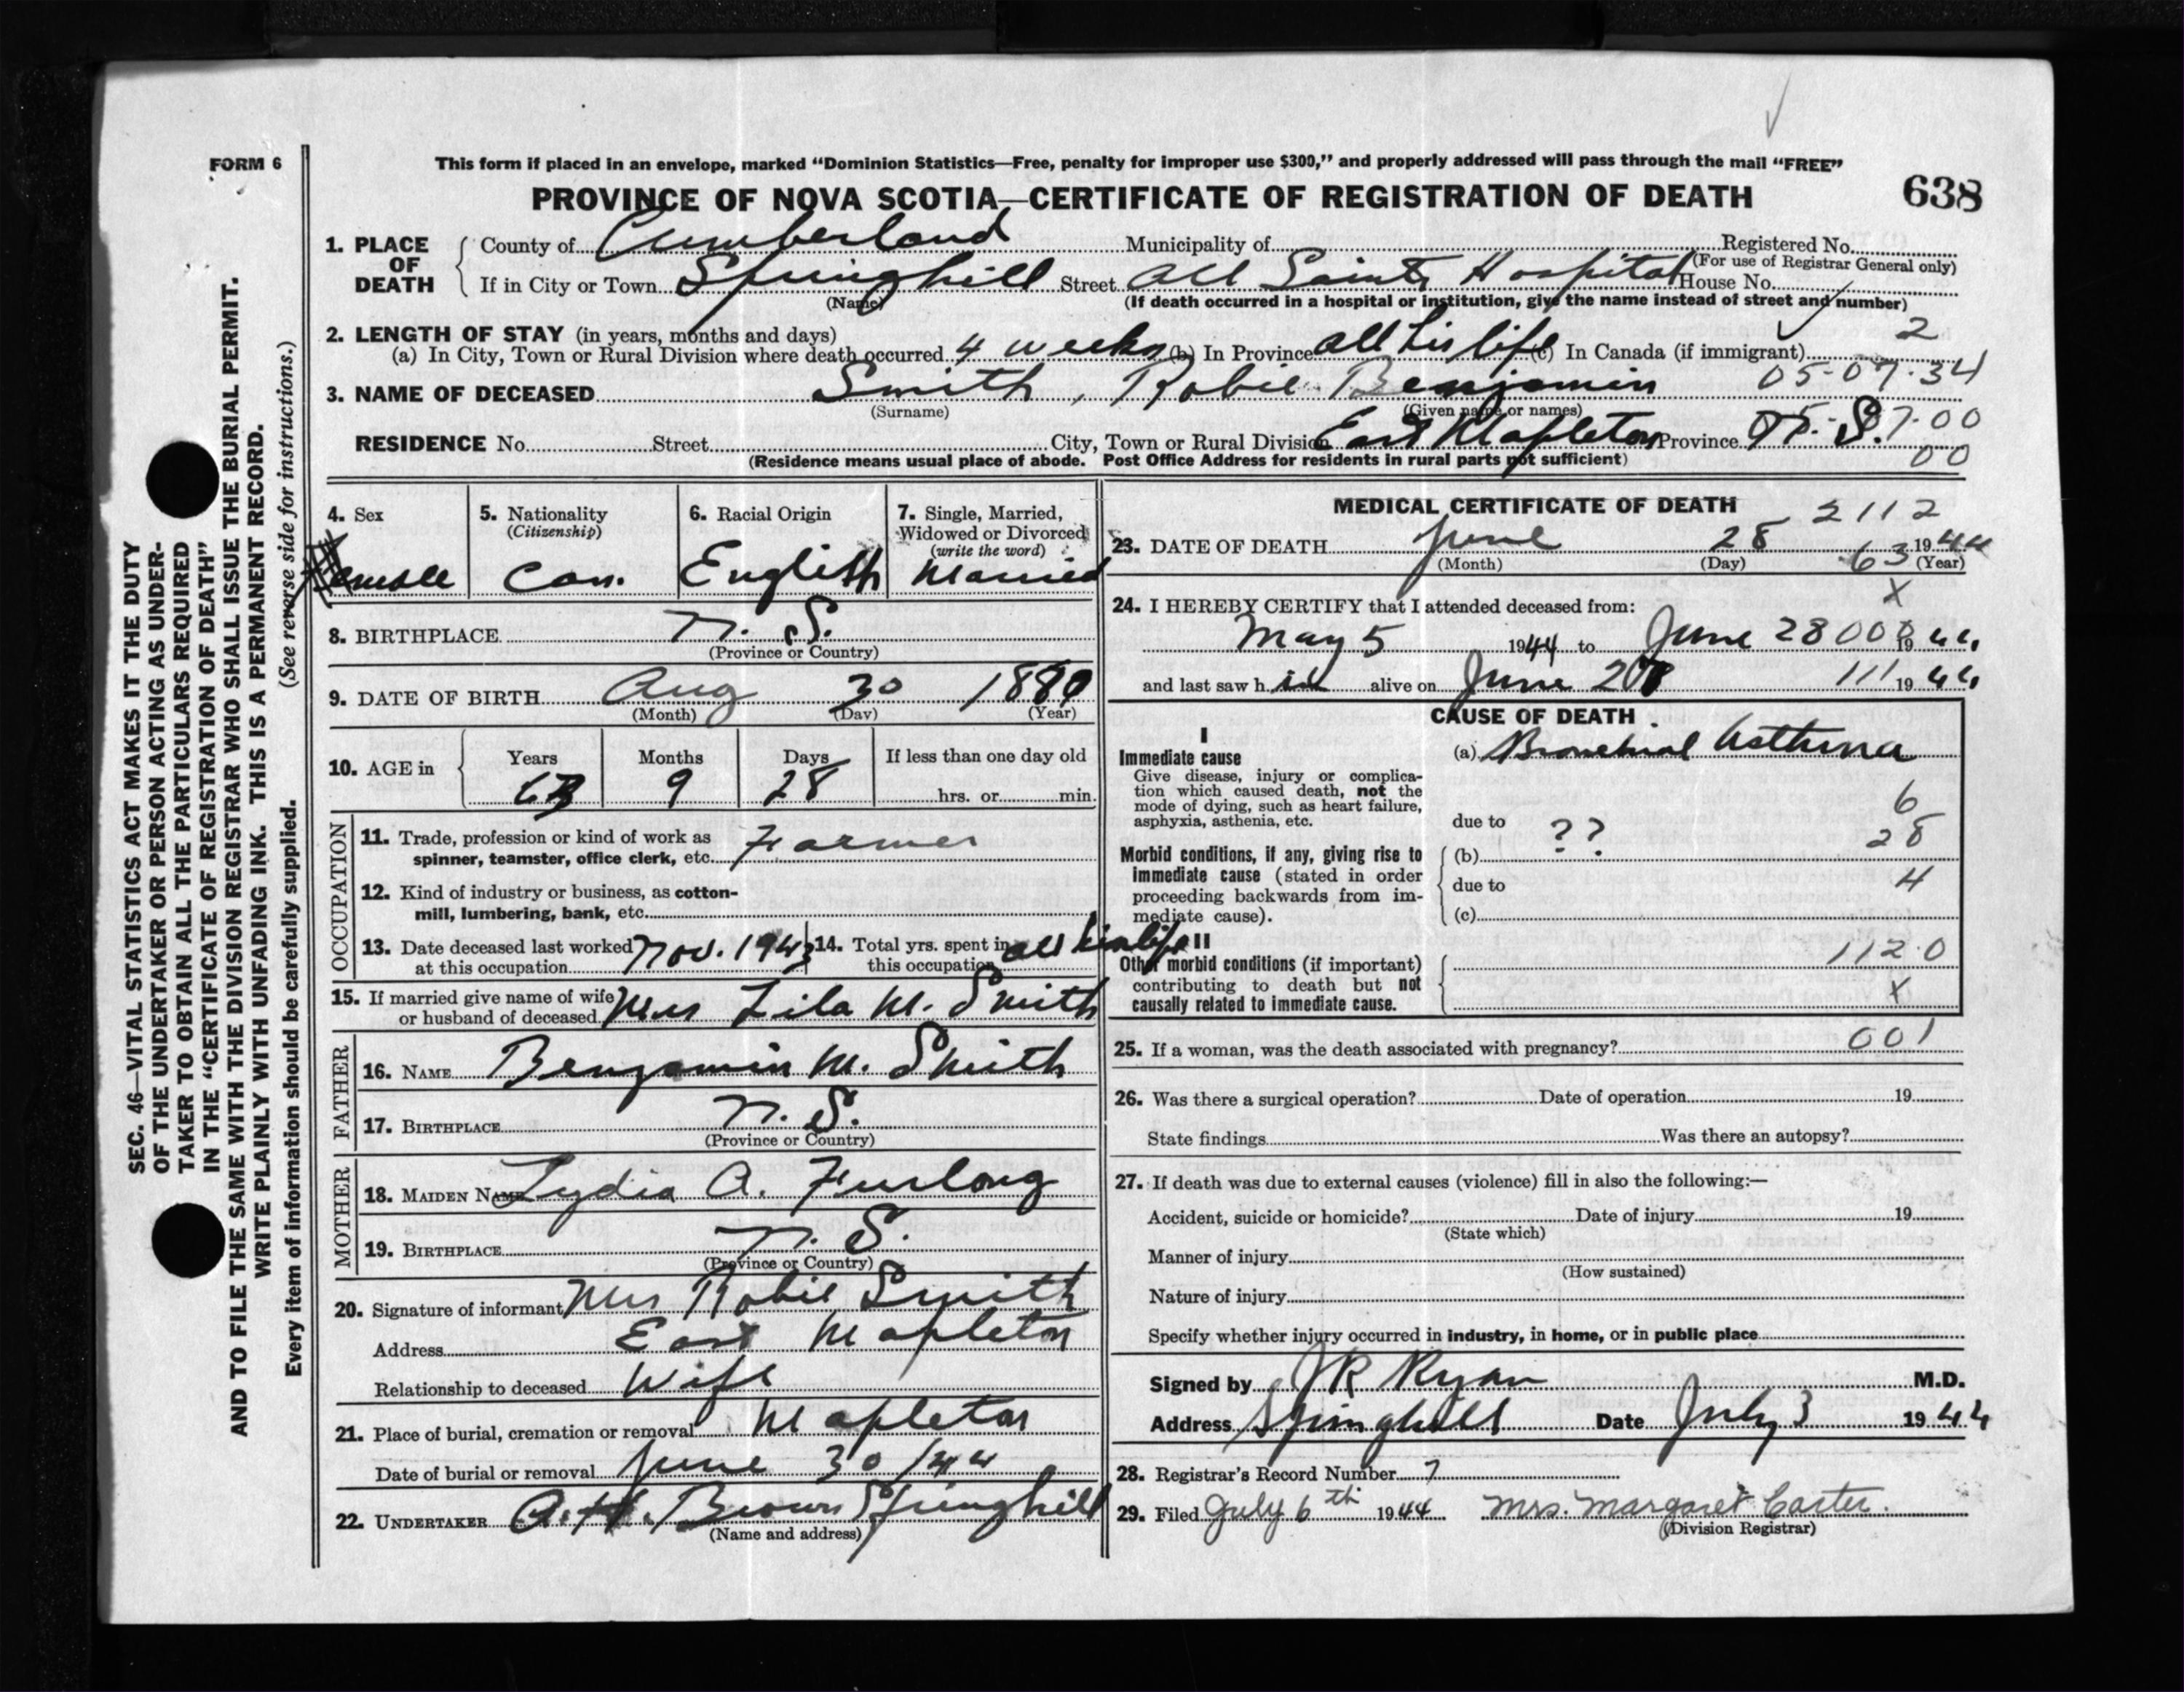 FORM 6
This form if placed in an envelope, marked “Dominion Statistics—Free, penalty for improper use $300,” and properly addressed will pass through the mail “FREE”
PROVINCE OF NOVA SCOTIA—CERTIFICATE OF REGISTRATION OF DEATH
638
1. PLACE OF DEATH
County of Cumberland Municipality of Registered No.
(For use of Registrar General only)
If in City or Town Springhill Street All Saints Hospital House No.
(Name) (If death occurred in a hospital or institution, give the name instead of street and number)
2. LENGTH OF STAY (in years, months and days) 2
(a) In City, Town or Rural Division where death occurred 4 weeks (b) In Province all his life (c) In Canada (if immigrant)
3. NAME OF DECEASED Smith, Robie Benjamin 05-07-34
(Surname) (Given name or names)
RESIDENCE No. Street City, Town or Rural Division East Mapleton Province N. S. 7-00
(Residence means usual place of abode. Post Office Address for residents in rural parts not sufficient) 00
4. Sex
5. Nationality (Citizenship) Can.
6. Racial Origin English
7. Single, Married, Widowed or Divorced (write the word) Married
8. BIRTHPLACE N. S.
(Province or Country)
9. DATE OF BIRTH Aug 30
(Month) (Day) (Year)
10. AGE in Years Months Days If less than one day old
9 28 hrs. or min.
OCCUPATION
11. Trade, profession or kind of work as spinner, teamster, office clerk, etc. Farmer
12. Kind of industry or business, as cotton-mill, lumbering, bank, etc.
13. Date deceased last worked at this occupation Nov. 1943
14. Total yrs. spent in this occupation all his life
15. If married give name of wife or husband of deceased Mrs Lila M. Smith
FATHER
16. NAME Benjamin M. Smith
17. BIRTHPLACE N. S.
(Province or Country)
MOTHER
18. MAIDEN NAME Lydia A. Furlong
19. BIRTHPLACE N. S.
(Province or Country)
20. Signature of informant Mrs Robie Smith
Address East Mapleton
Relationship to deceased Wife
21. Place of burial, cremation or removal Mapleton
Date of burial or removal June 30/44
22. UNDERTAKER A. H. Brown Springhill
(Name and address)
MEDICAL CERTIFICATE OF DEATH
2112
23. DATE OF DEATH June 28 1944
(Month) (Day) (Year)
63
x
24. I HEREBY CERTIFY that I attended deceased from:
May 5 1944 to June 28 000 1944
and last saw h im alive on June 111 1944
CAUSE OF DEATH
I
Immediate cause
Give disease, injury or complication which caused death, not the mode of dying, such as heart failure, asphyxia, asthenia, etc.
(a) Bronchial Asthma
6
due to
Morbid conditions, if any, giving rise to immediate cause (stated in order proceeding backwards from immediate cause).
(b) ? ? 28
due to 4
(c)
II
Other morbid conditions (if important) contributing to death but not causally related to immediate cause.
1120
x
25. If a woman, was the death associated with pregnancy? 001
26. Was there a surgical operation? Date of operation 19
State findings Was there an autopsy?
27. If death was due to external causes (violence) fill in also the following:—
Accident, suicide or homicide? Date of injury 19
(State which)
Manner of injury
(How sustained)
Nature of injury
Specify whether injury occurred in industry, in home, or in public place
Signed by JR Ryan M.D.
Address Springhill Date July 3 1944
28. Registrar's Record Number 7
29. Filed July 6th 1944 Mrs. Margaret Carter.
(Division Registrar)
SEC. 46—VITAL STATISTICS ACT MAKES IT THE DUTY
OF THE UNDERTAKER OR PERSON ACTING AS UNDER-
TAKER TO OBTAIN ALL THE PARTICULARS REQUIRED
IN THE “CERTIFICATE OF REGISTRATION OF DEATH”
AND TO FILE THE SAME WITH THE DIVISION REGISTRAR WHO SHALL ISSUE THE BURIAL PERMIT.
WRITE PLAINLY WITH UNFADING INK. THIS IS A PERMANENT RECORD.
Every item of information should be carefully supplied. (See reverse side for instructions.)